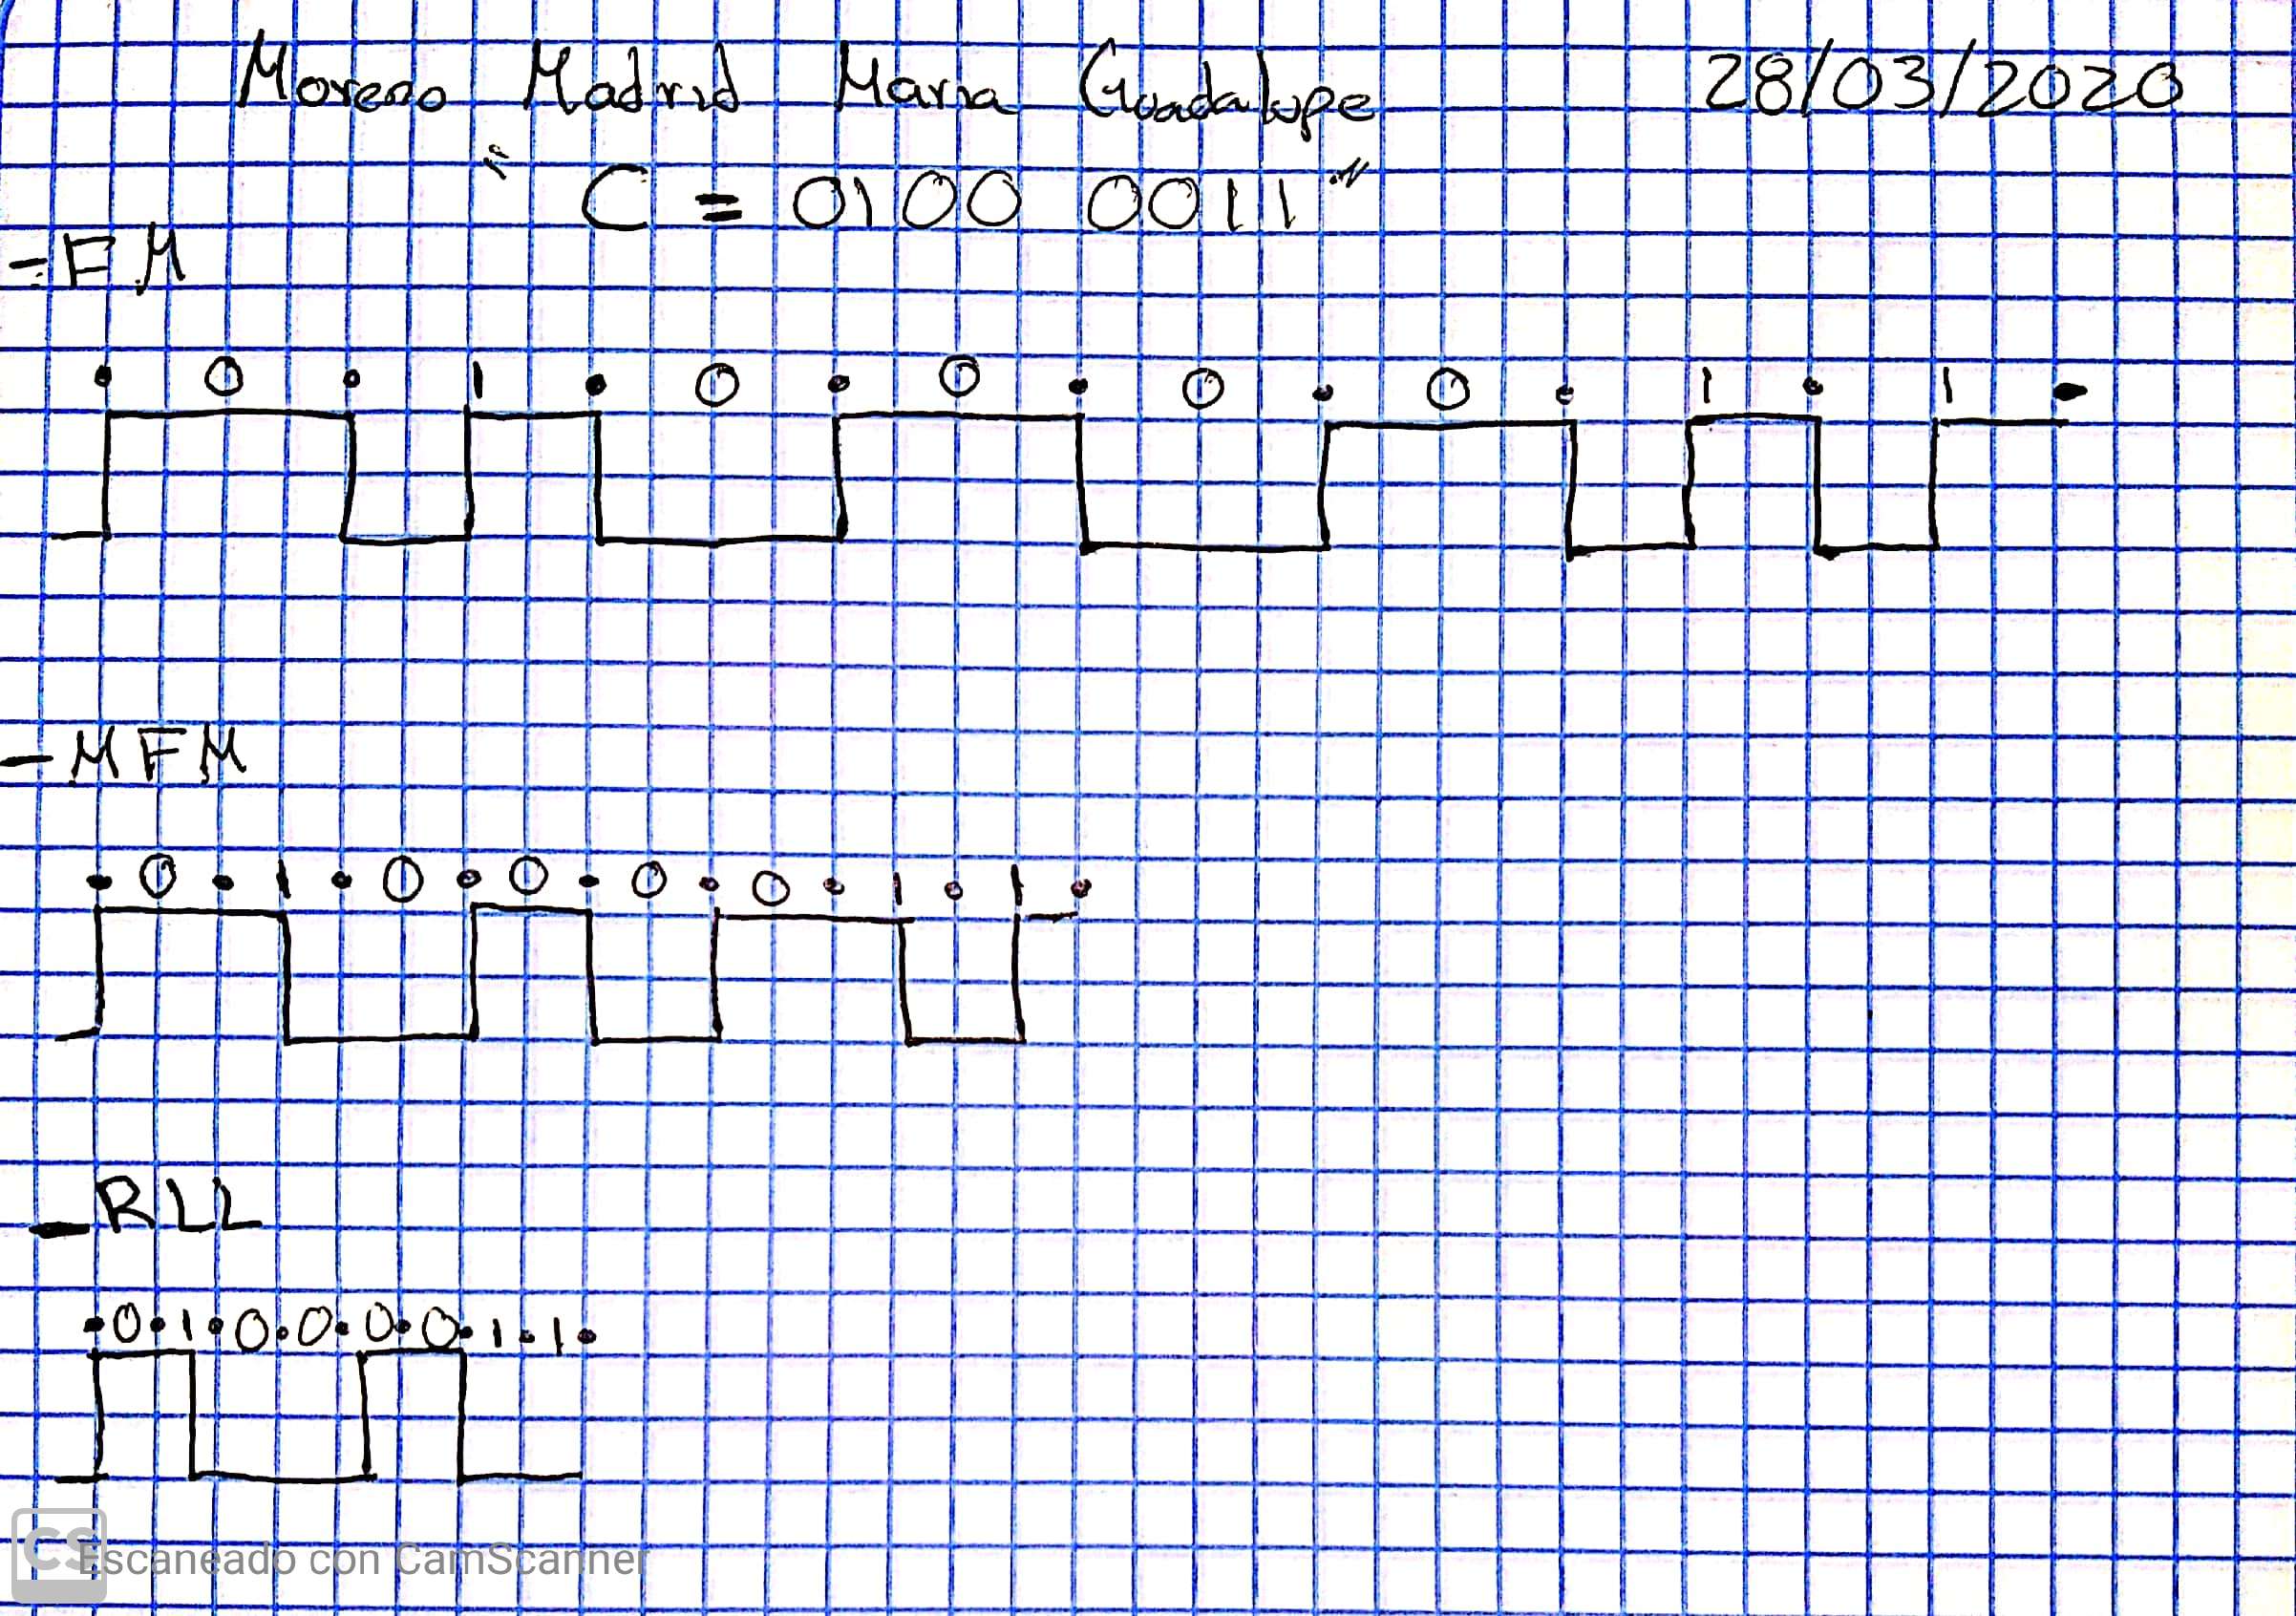 Moreno Madrid Maria Guadalupe 28/03/2020
"C = 0100 0011"
- FM
• 0 • 1 • 0 • 0 • 0 • 0 • 1 • 1 •
- MFM
• 0 • 1 • 0 • 0 • 0 • 0 • 1 • 1 •
- RLL
• 0 • 1 • 0 • 0 • 0 • 0 • 1 • 1 •
CS Escaneado con CamScanner